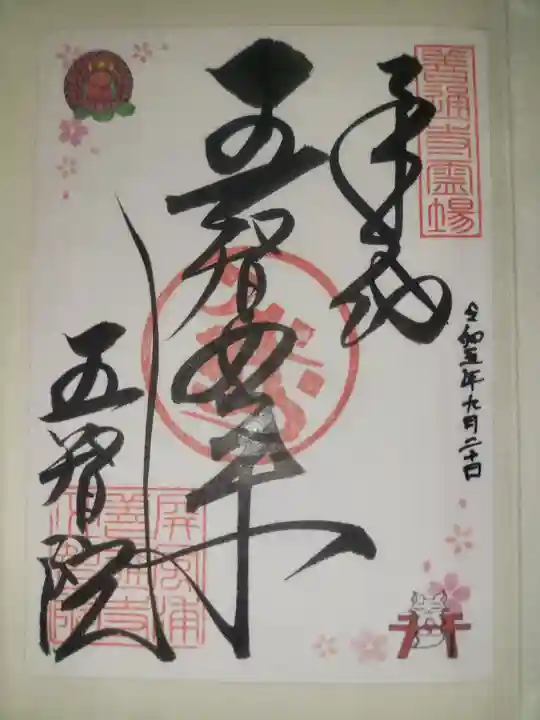 善通寺霊場
奉拝
令和五年九月二十日
五智如来
五智院
屏風浦
善通寺